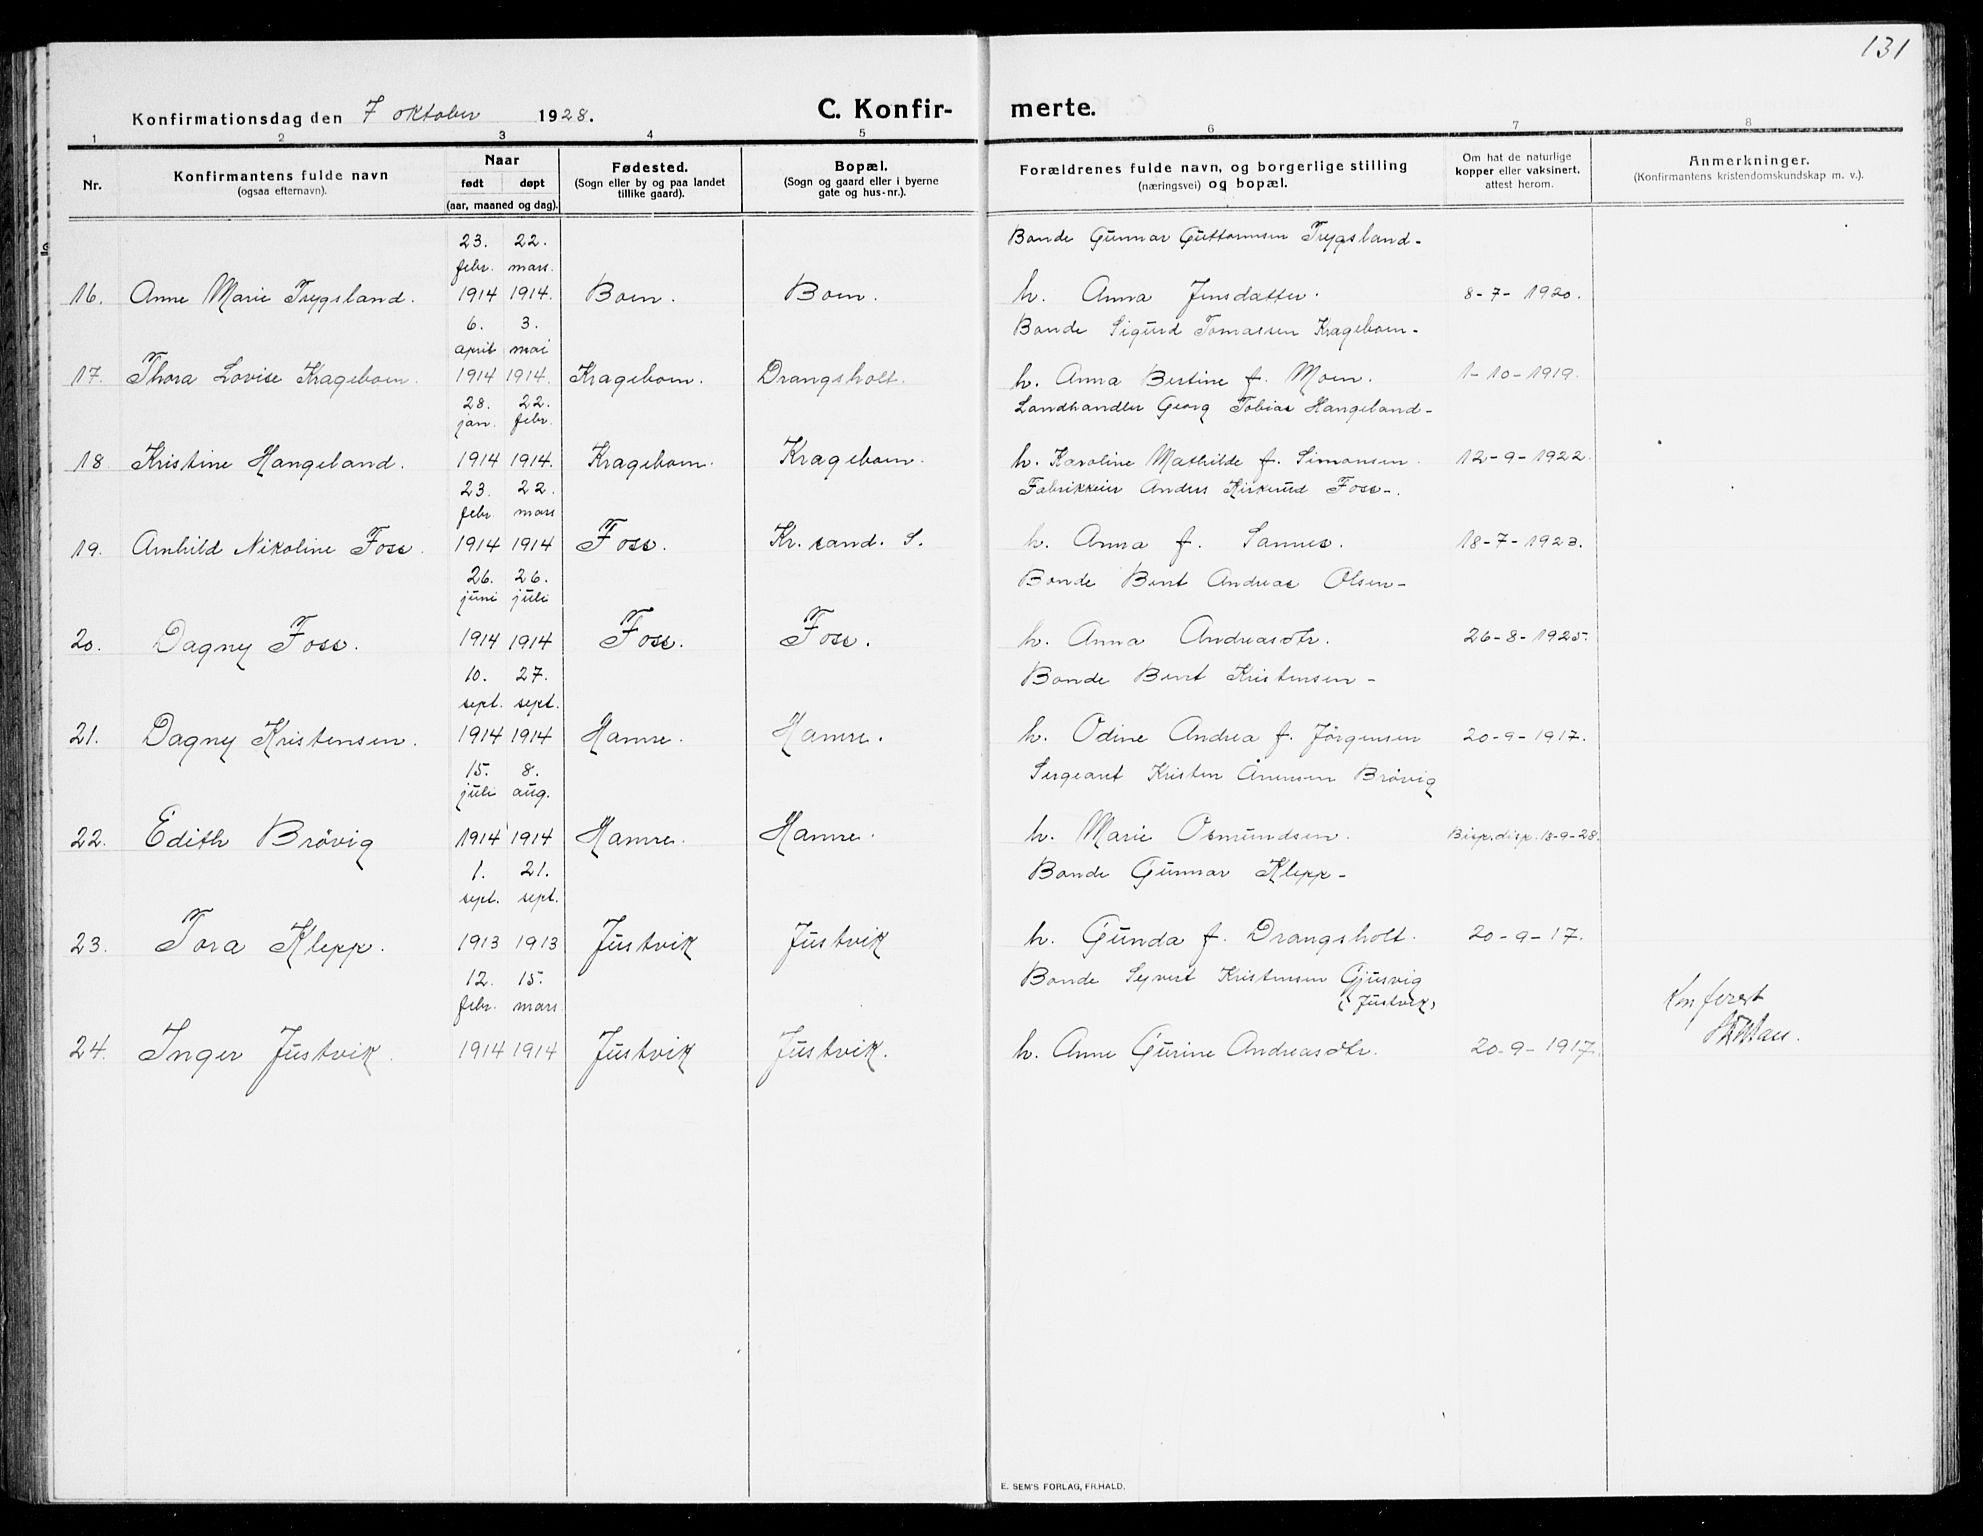 131
Konfirmationsdag den 7 oktober 1928.
C. Konfir-
merte.
1 2 3 4 5 6 7 8
Nr.
Konfirmantens fulde navn
(ogsaa efternavn).
Naar
født døpt
(aar, maaned og dag).
Fødested.
(Sogn eller by og paa landet
tillike gaard).
Bopæl.
(Sogn og gaard eller i byerne
gate og hus-nr.).
Forældrenes fulde navn, og borgerlige stilling
(næringsvei) og bopæl.
Om hat de naturlige
kopper eller vaksinert,
attest herom.
Anmerkninger.
(Konfirmantens kristendomskundskap m. v.).
23. 22. Bonde Gunnar Guttormsen Trygsland -
febr. mars.
16. Anne Marie Trygsland. 1914 1914. Boen. Boen. h. Anna Jensdatter. 8-7-1920.
6. 3. Bonde Sigurd Tomassen Krageboen -
april mai
17. Thora Lovise Krageboen. 1914 1914. Krageboen. Drangsholt. h. Anna Bertine f. Moen. 1-10-1919.
28. 22. Landhandler Georg Tobias Hangeland -
jan. febr.
18 Kristine Hangeland. 1914 1914. Krageboen. Krageboen. h. Karoline Mathilde f. Simonsen. 12-9-1922.
23. 22. Fabrikkeier Anders Kirkerud Foss -.
febr mars
19. Arnhild Nikoline Foss. 1914 1914 Foss. Kr. sand. S. h. Anna f. Sannes. 18-7-1923.
26. 26. Bonde Bent Andreas Olsen -
juni juli
20. Dagny Foss. 1914 1914 Foss. Foss. h. Anna Andreasdtr. 26-8-1925.
10. 27. Bonde Bent Kristensen -
sept. sept.
21. Dagny Kristensen. 1914 1914 Hamre. Hamre. h. Odine Andrea f. Jörgensen 20-9-1917.
15. 8. Sergeant Kristen Ånensen Brövig
juli aug.
22. Edith Brövig 1914 1914 Hamre. Hamre. h. Marie Osmundsen. Bisp. disp. 18-9-28.
1. 21. Bonde Gunnar Klepp -
sept. sept.
23. Tora Klepp. 1913 1913 Justvik Justvik h. Gunda f. Drangsholt. 20-9-17.
12. 15. Bonde Syvert Kristensen Gjusvig
febr. mars (Justvik)
24. Inger Justvik. 1914 1914 Justvik Justvik. h. Anne Gurine Andreasdtr. 20-9-1917.
Konferert
E. SEM'S FORLAG, FR.HALD.